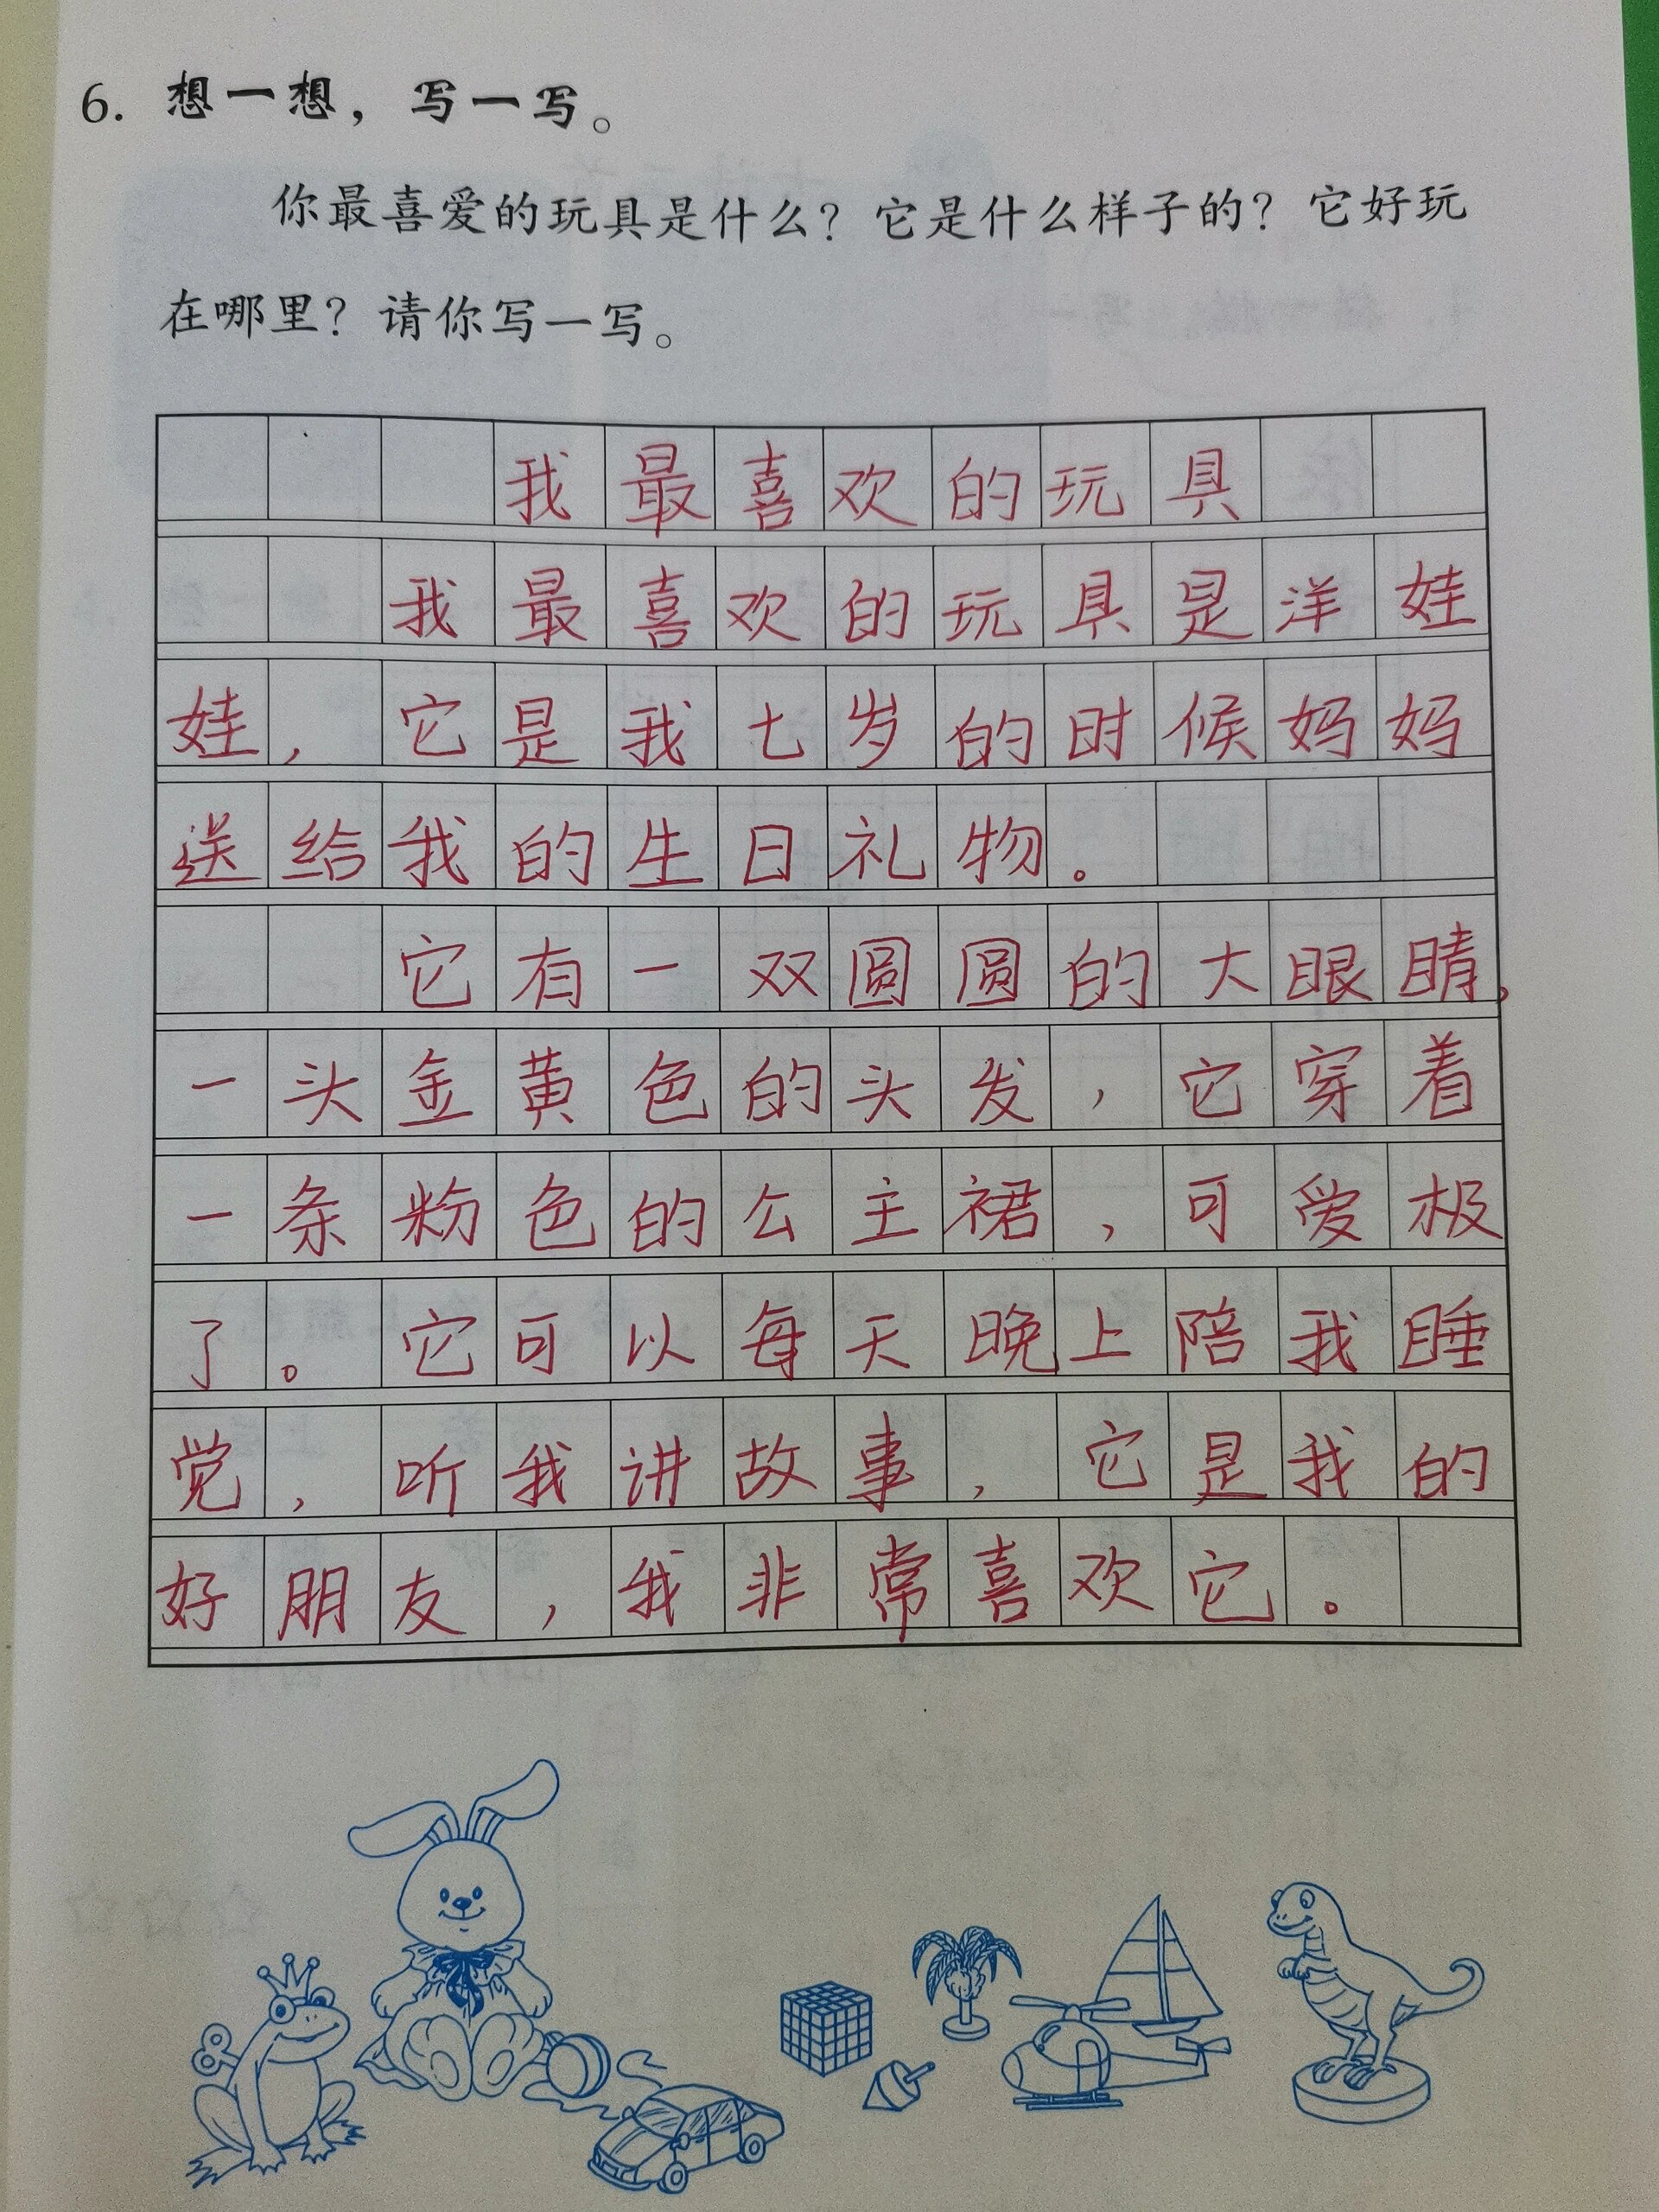 6. 想一想，写一写。
你最喜爱的玩具是什么？它是什么样子的？它好玩
在哪里？请你写一写。
我最喜欢的玩具
我最喜欢的玩具是洋娃
娃，它是我七岁的时候妈妈
送给我的生日礼物。
它有一双圆圆的大眼睛，
一头金黄色的头发，它穿着
一条粉色的公主裙，可爱极
了。它可以每天晚上陪我睡
觉，听我讲故事，它是我的
好朋友，我非常喜欢它。